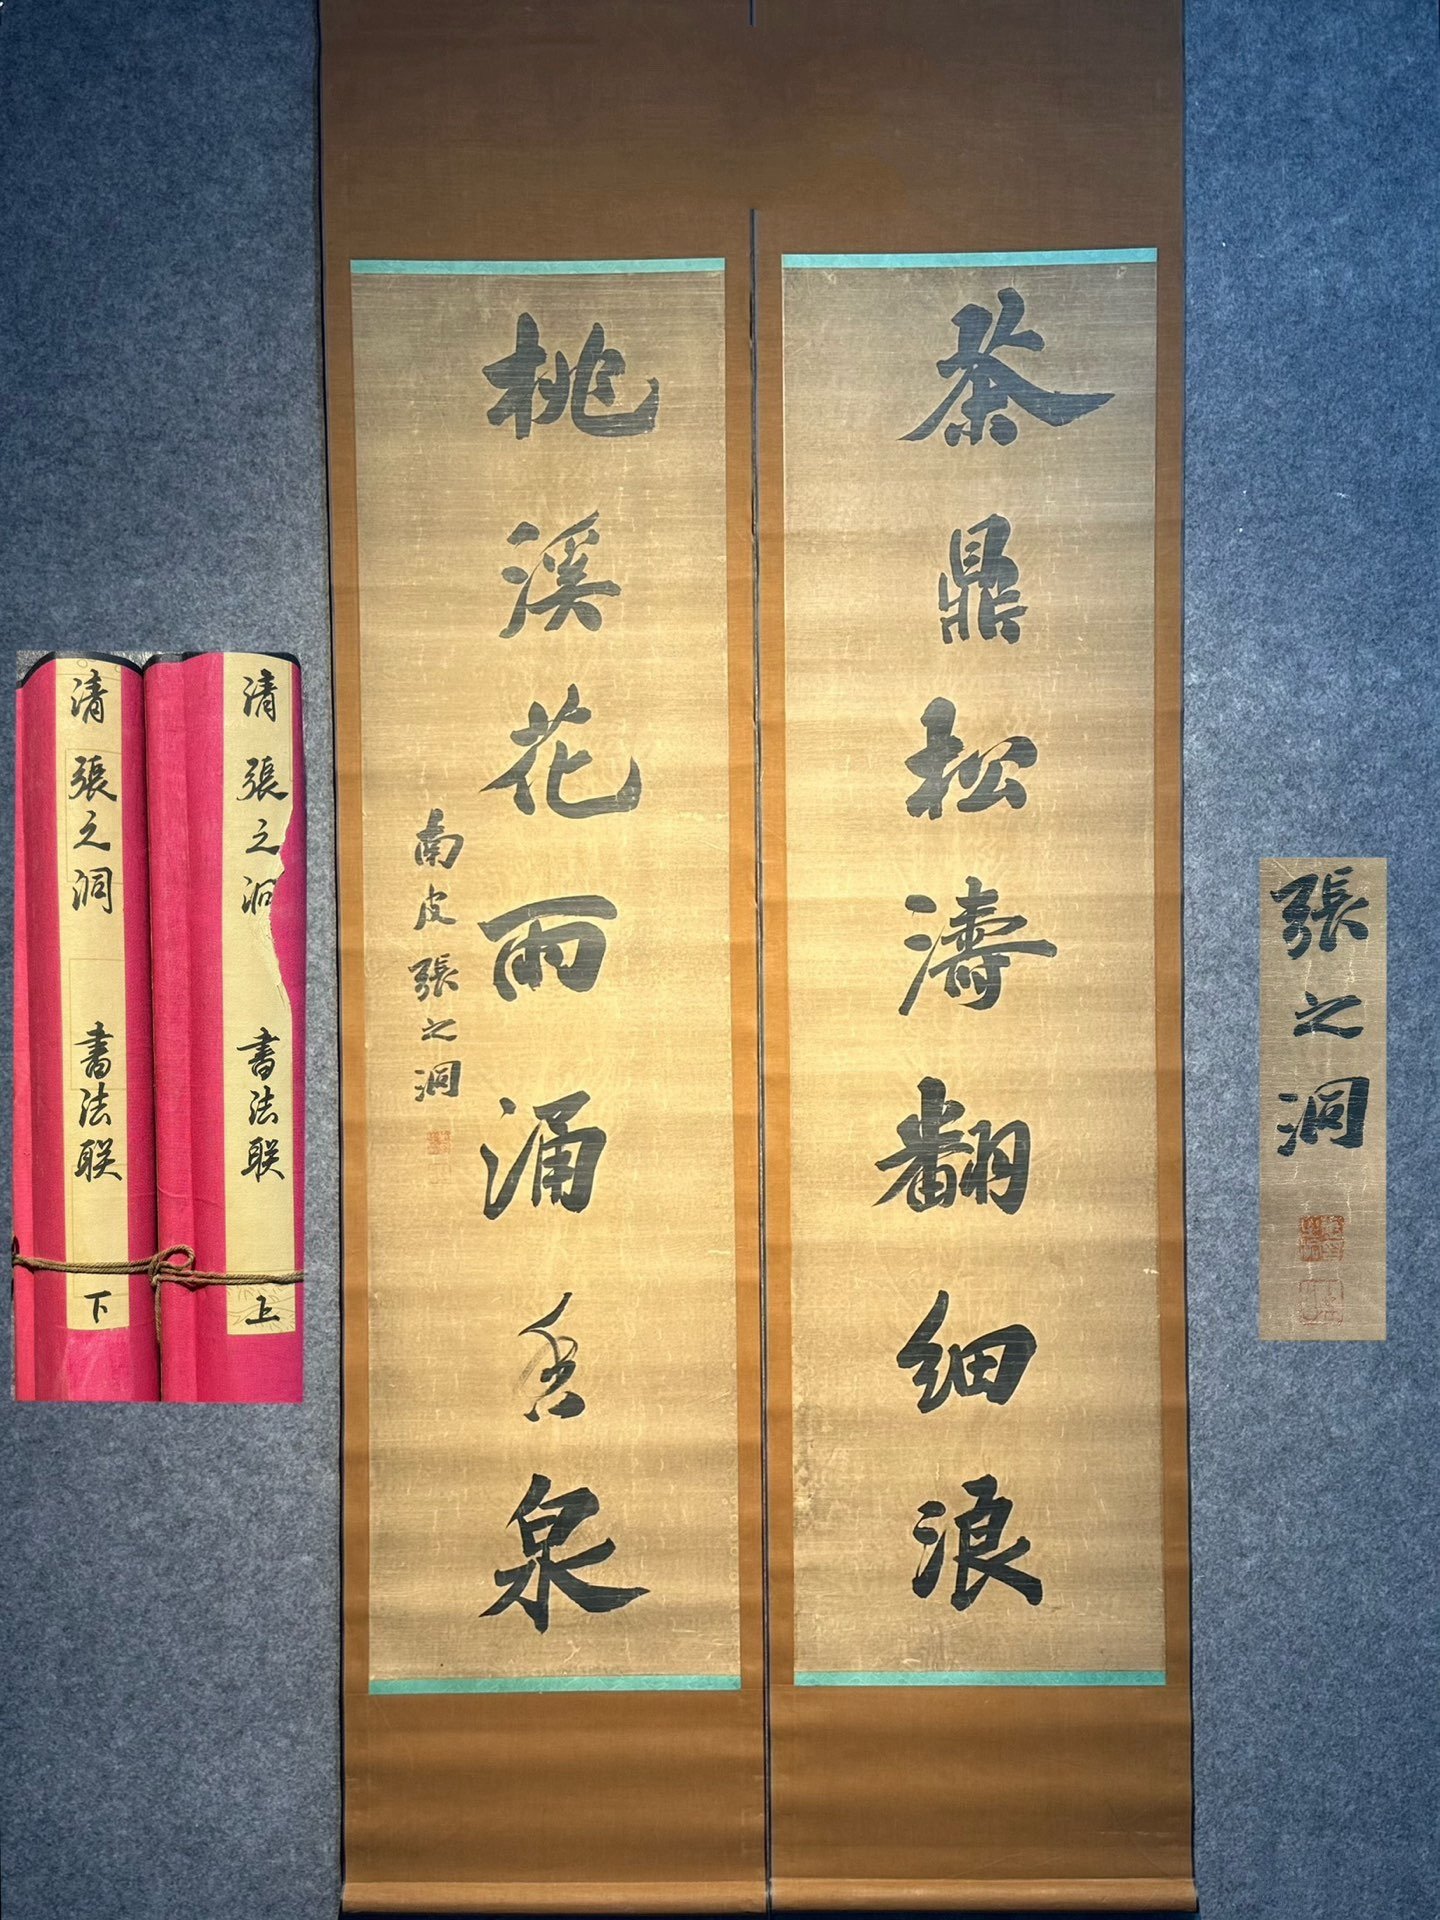 茶鼎松濤翻細浪
桃溪花雨涌香泉
南皮張之洞
清 張之洞 書法联 上
清 張之洞 書法联 下
張之洞